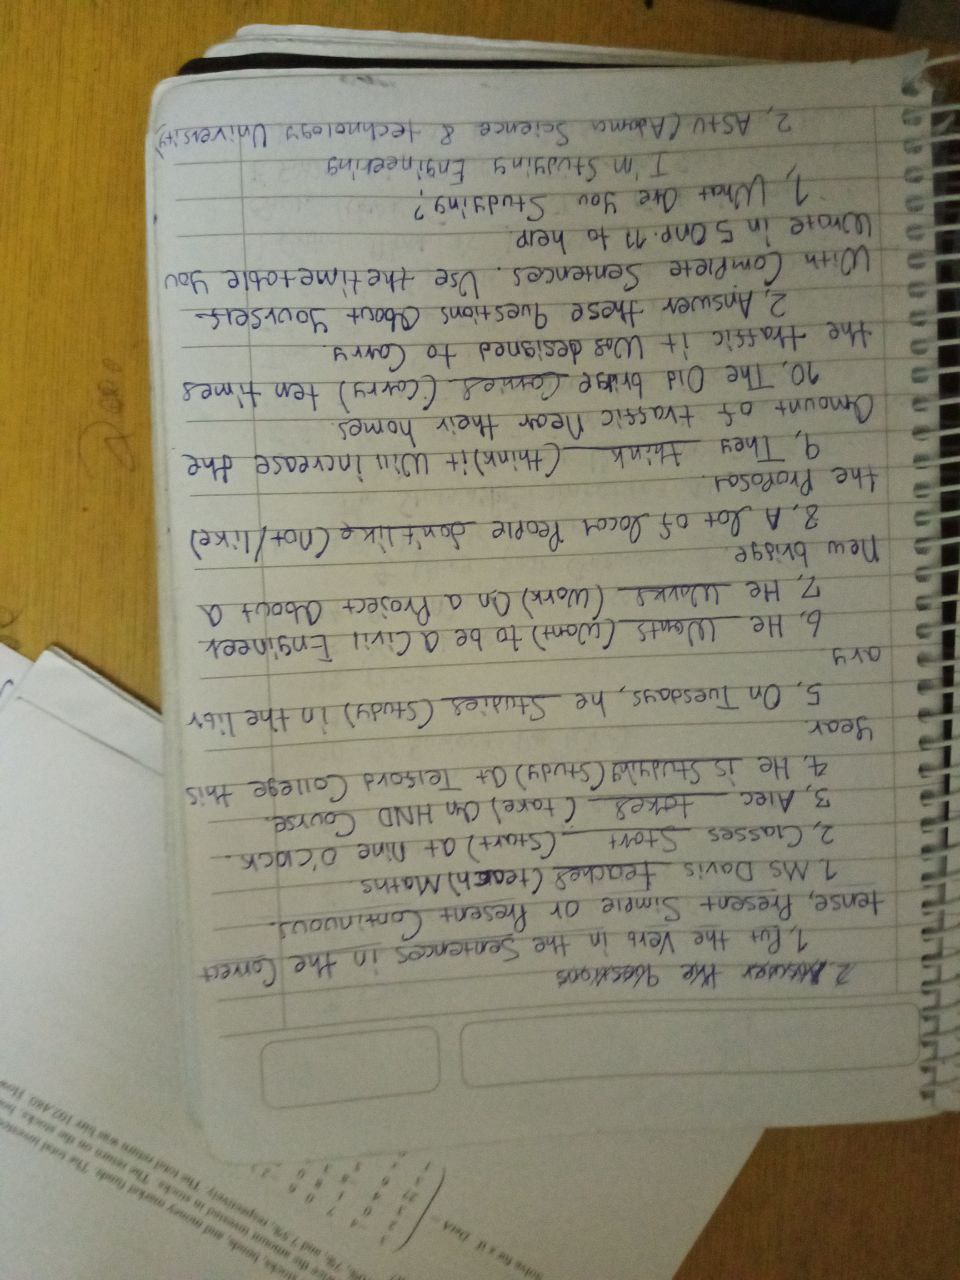 2. Answer the questions
1, Put the Verb in the Sentences in the Correct
tense, Present Simple or Present Continuous.
1. Ms Davis teaches (teach) Maths
2, Classes Start (start) at nine O'clock.
3, Alec takes (take) an HND Course.
4, He is studying (study) at Telford College this
Year
5, On Tuesdays, he Studies (study) in the libr
ary
6, He Wants (want) to be a Civil Engineer
7, He Works (work) On a Project about a
New bridge
8, A lot of local People don't like (not/like)
the Proposal.
9, They think (think) it will increase the
amount of traffic near their homes.
10, The Old bridge Carries (Carry) ten times
the traffic it was designed to Carry.
2, Answer these questions about yourself
With Complete Sentences. Use the timetable you
Wrote in 5 on p.11 to help.
1, What are you Studying?
I'm Studying Engineering
2, ASTU (Adama Science & technology University)
2000
Solve for x if DetA =
stocks, bonds, and money market funds. The total
7%, and 7.5%, respectively. The total return was birr 102,480. How